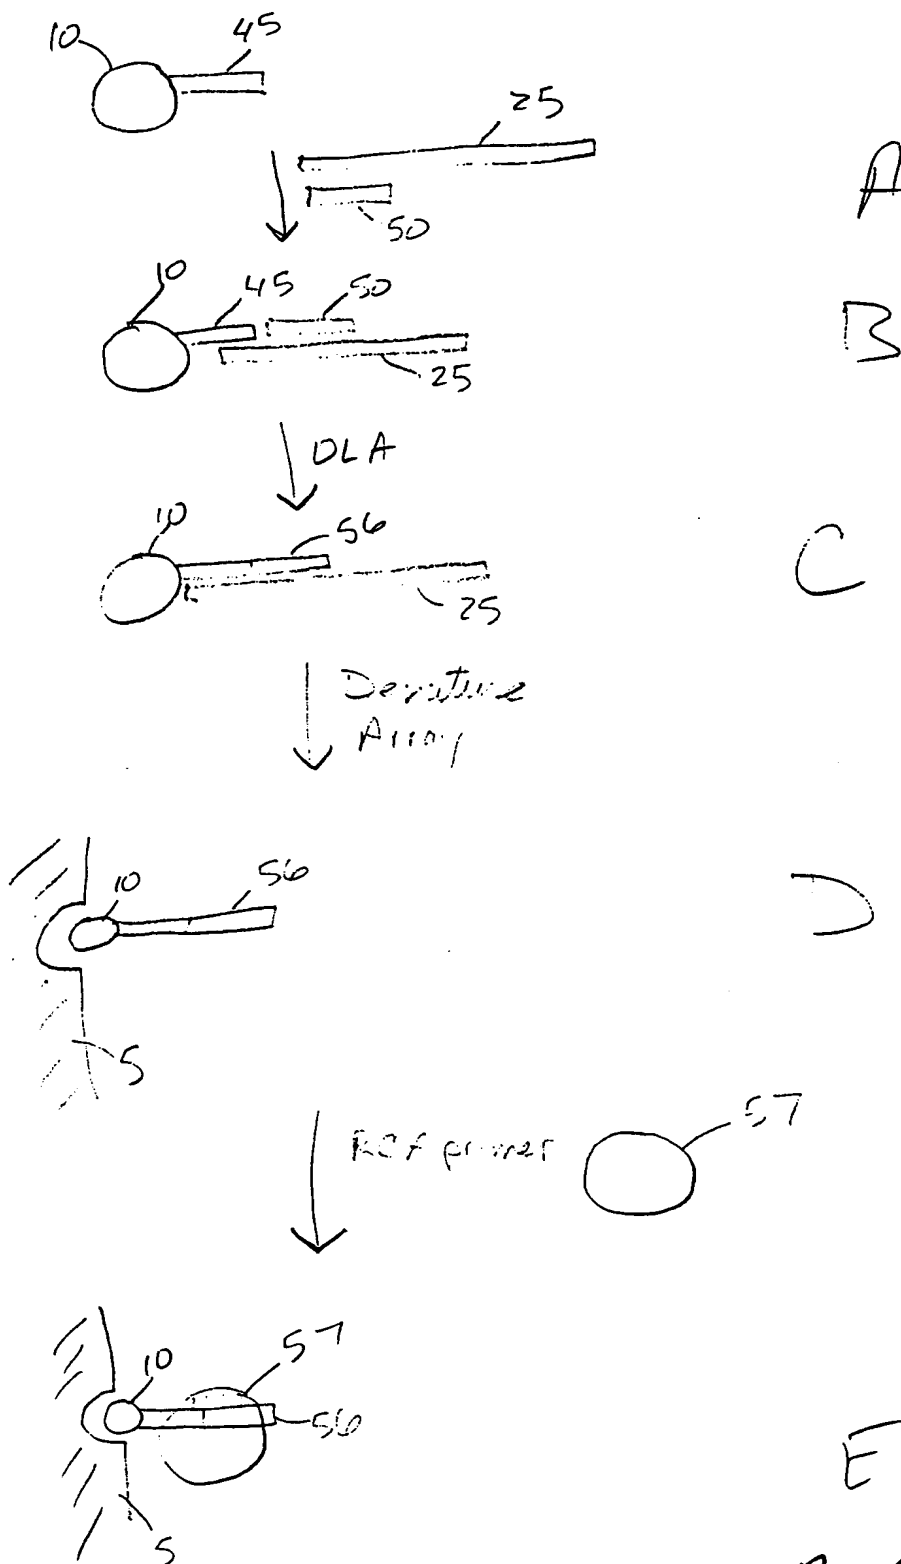 10 45
25
A
50
10 45 50
B
25
OLA
10 56
C
25
Denature
Array
10 56
D
5
57
RCA primer
57
10
56
E
5